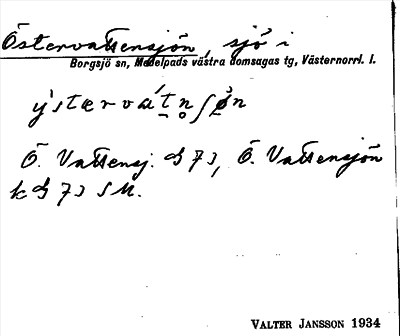 Östervattensjön, sjö i
Borgsjö sn, Medelpads västra domsagas tg, Västernorrl. l.
Ö. Vattensj. 73, Ö. Vattensjön
73 SM.
VALTER JANSSON 1934